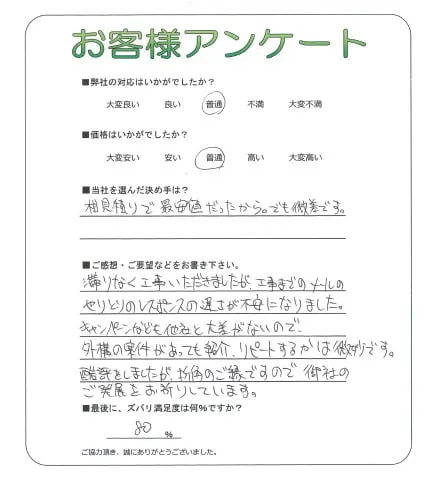 お客様アンケート
■弊社の対応はいかがでしたか？
大変良い 良い 普通 不満 大変不満
■価格はいかがでしたか？
大変安い 安い 普通 高い 大変高い
■当社を選んだ決め手は？
相見積りで最安値だったから。でも微差です。
■ご感想・ご要望などをお書き下さい。
滞りなく工事いただきましたが、工事までのメールの
やりとりのレスポンスの遅さが不安になりました。
キャンペーンなども他社と大差がないので、
外構の案件があっても紹介、リピートするかは微妙です。
酷評をしましたが、折角のご縁ですので御社の
ご発展をお祈りしています。
■最後に、ズバリ満足度は何%ですか？
80 %
ご協力頂き、誠にありがとうございました。